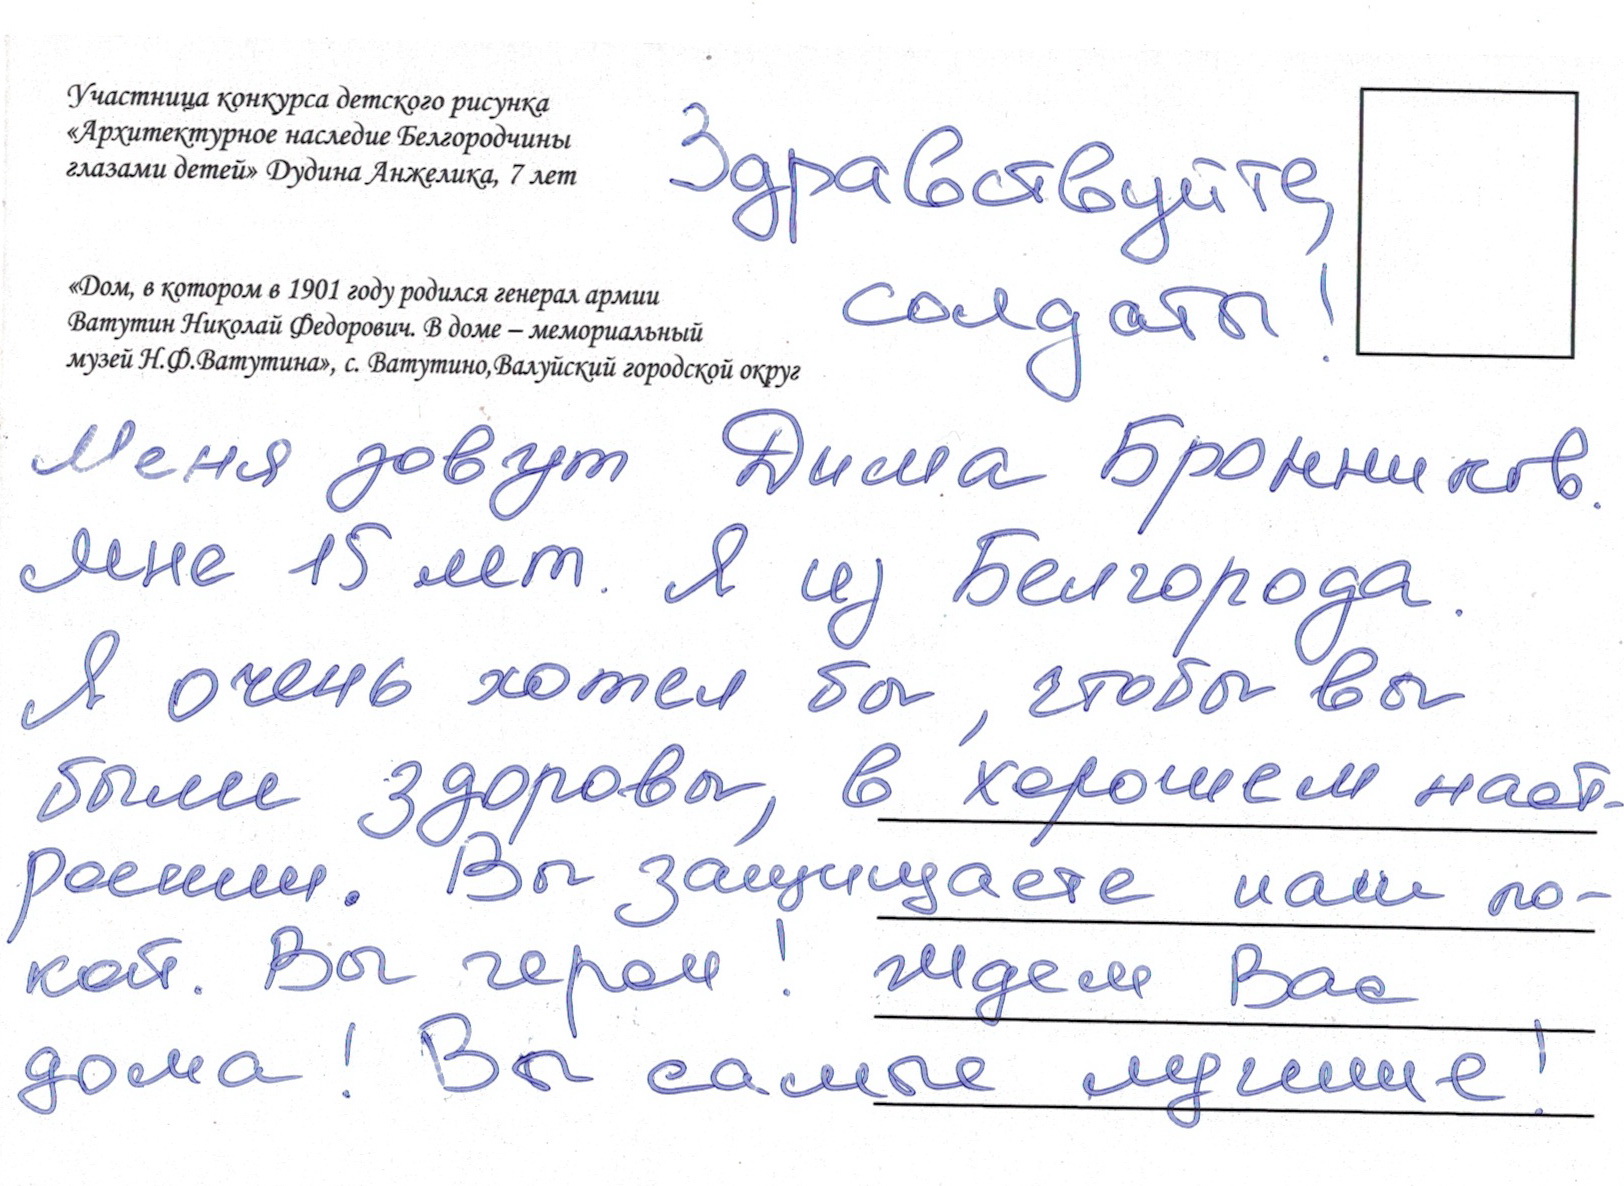 Участница конкурса детского рисунка
«Архитектурное наследие Белгородчины
глазами детей» Дудина Анжелика, 7 лет
«Дом, в котором в 1901 году родился генерал армии
Ватутин Николай Федорович. В доме – мемориальный
музей Н.Ф.Ватутина», с. Ватутино,Валуйский городской округ
Здравствуйте,
солдаты!
Меня зовут Дима Бронников.
Мне 15 лет. Я из Белгорода.
Я очень хотел бы, чтобы вы
были здоровы, в хорошем наст-
роении. Вы защищаете наш по-
кой. Вы герои! Ждем Вас
дома! Вы самые лучшие!